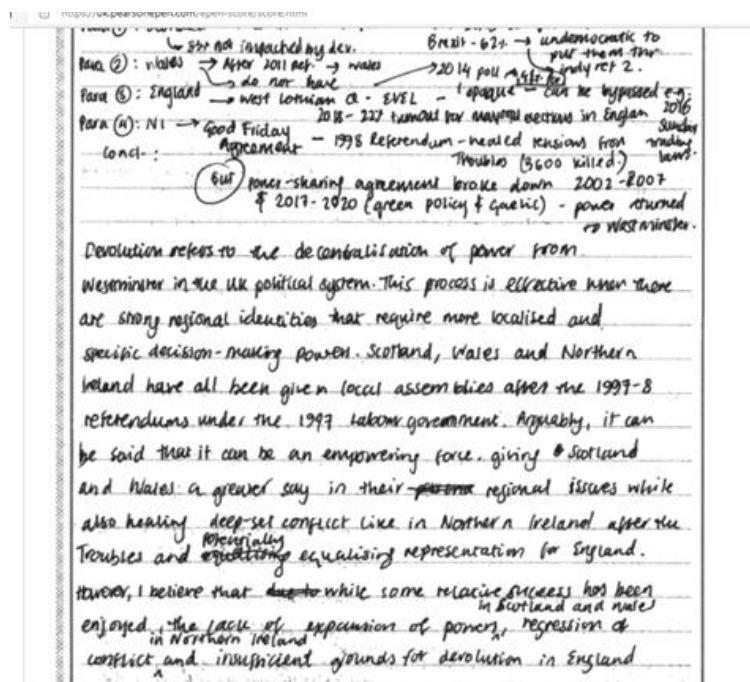 https://uk.pearsonepen.com/epen-score/score.html
not impacted by dev.
Brexit - 62% → undemocratic to
put them thr
indy ref 2.
Para ②: Wales → After 2011 ref. → Wales
do not have
→ 2014 poll
Para ③: England → West Lothian Q - EVEL - 'opaque' - can be bypassed e.g.
2016
Sunday
trading
laws.
2018 - turnout for mayoral elections in England
Para ④: NI → Good Friday
Agreement - 1998 Referendum - healed tensions from
Troubles (3600 killed.)
Concl-:
But power-sharing agreement broke down 2002-2007
& 2017-2020 (green policy & Gaelic) - power returned
to Westminster.
Devolution refers to the decentralisation of power from
Westminster in the UK political system. This process is effective when there
are strong regional identities that require more localised and
specific decision-making powers. Scotland, Wales and Northern
Ireland have all been given local assemblies after the 1997-8
referendums under the 1997 Labour government. Arguably, it can
be said that it can be an empowering force. giving Scotland
and Wales a greater say in their regional issues while
also healing deep-set conflict like in Northern Ireland after the
Troubles and potentially equalising representation for England.
However, I believe that while some relative success has been
enjoyed, the lack of expansion of powers in Scotland and Wales, regression of
conflict in Northern Ireland and insufficient grounds for devolution in England